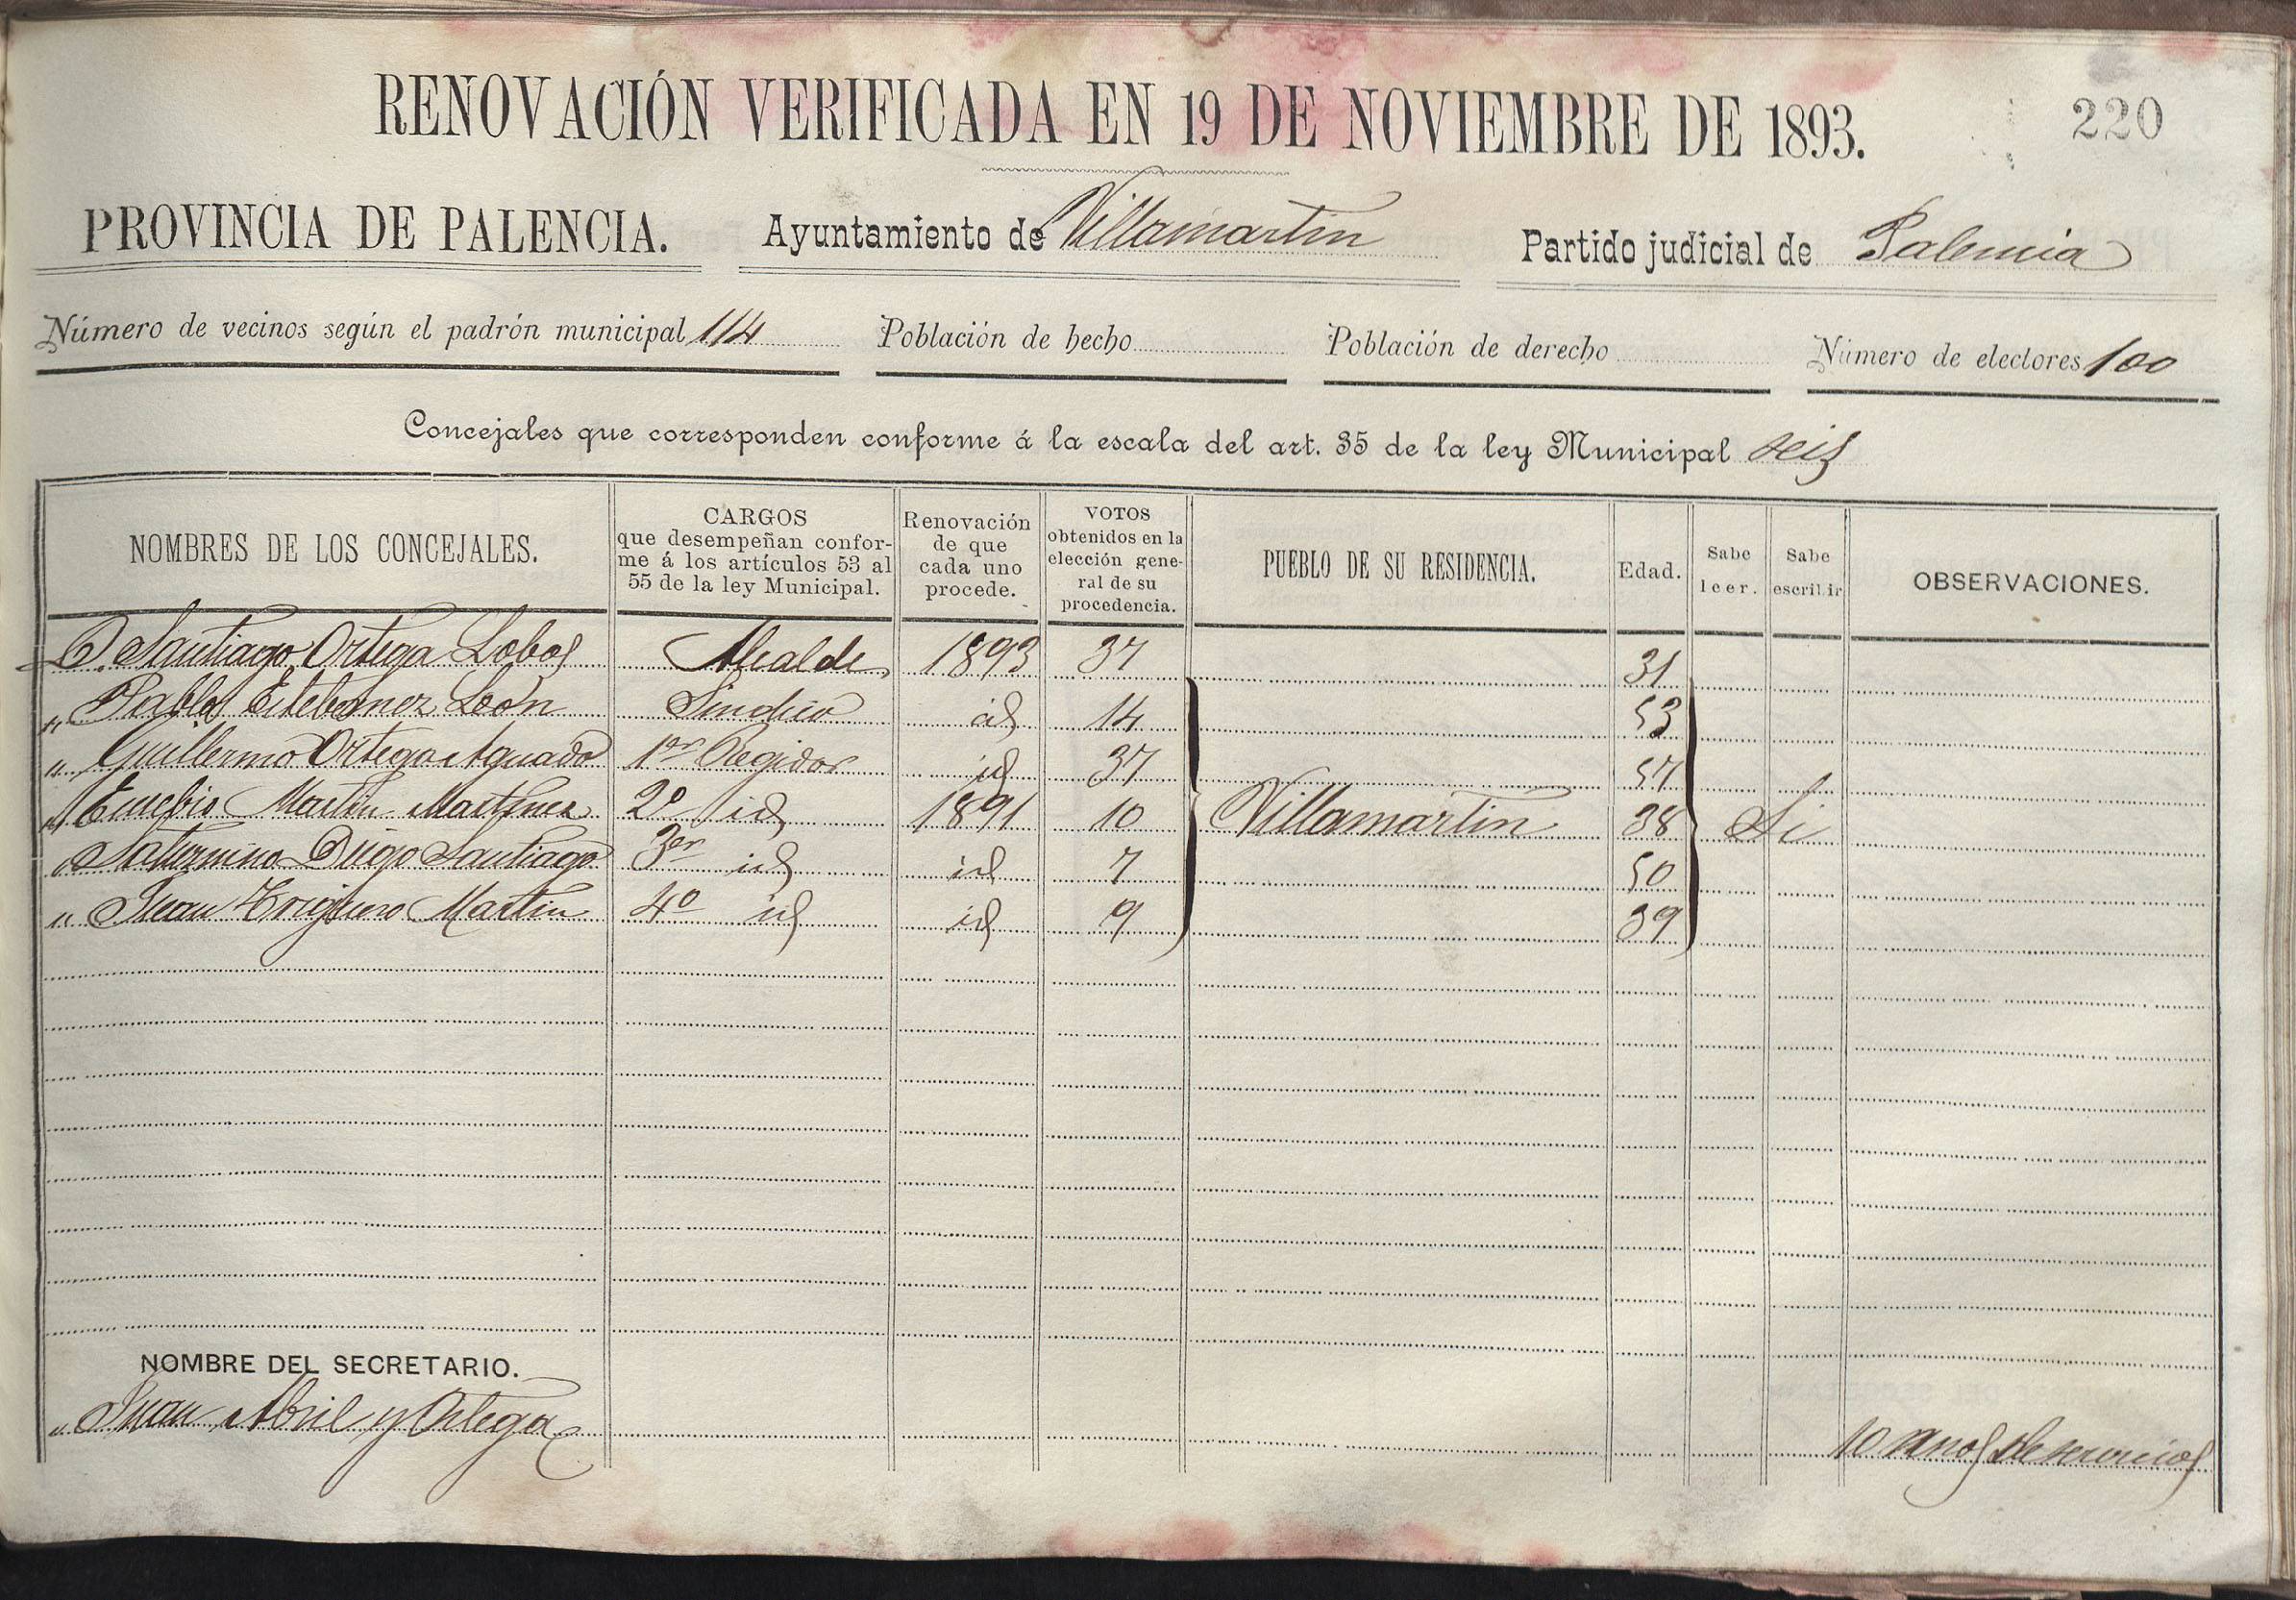 220
RENOVACIÓN VERIFICADA EN 19 DE NOVIEMBRE DE 1893.
PROVINCIA DE PALENCIA. Ayuntamiento de Villamartin Partido judicial de Palencia
Número de vecinos según el padrón municipal 114 Población de hecho Población de derecho Número de electores 100
Concejales que corresponden conforme á la escala del art. 35 de la ley Municipal seis
NOMBRES DE LOS CONCEJALES. CARGOS que desempeñan conforme á los artículos 53 al 55 de la ley Municipal. Renovación de que cada uno procede. VOTOS obtenidos en la elección general de su procedencia. PUEBLO DE SU RESIDENCIA. Edad. Sabe leer. Sabe escribir OBSERVACIONES.
D. Santiago Ortega Lobos Alcalde 1893 37 31
" Pablo Estebanez León Sindico id 14 53
" Guillermo Ortega Aguado 1er Regidor id 37 57
" Eusebio Martin Martinez 2º id 1891 10 Villamartin 38 Si
" Saturnino Diego Santiago 3er id id 7 50
" Juan Trigueros Martin 4º id id 9 39
NOMBRE DEL SECRETARIO.
" Juan Abril y Ortega 10 años de servicios